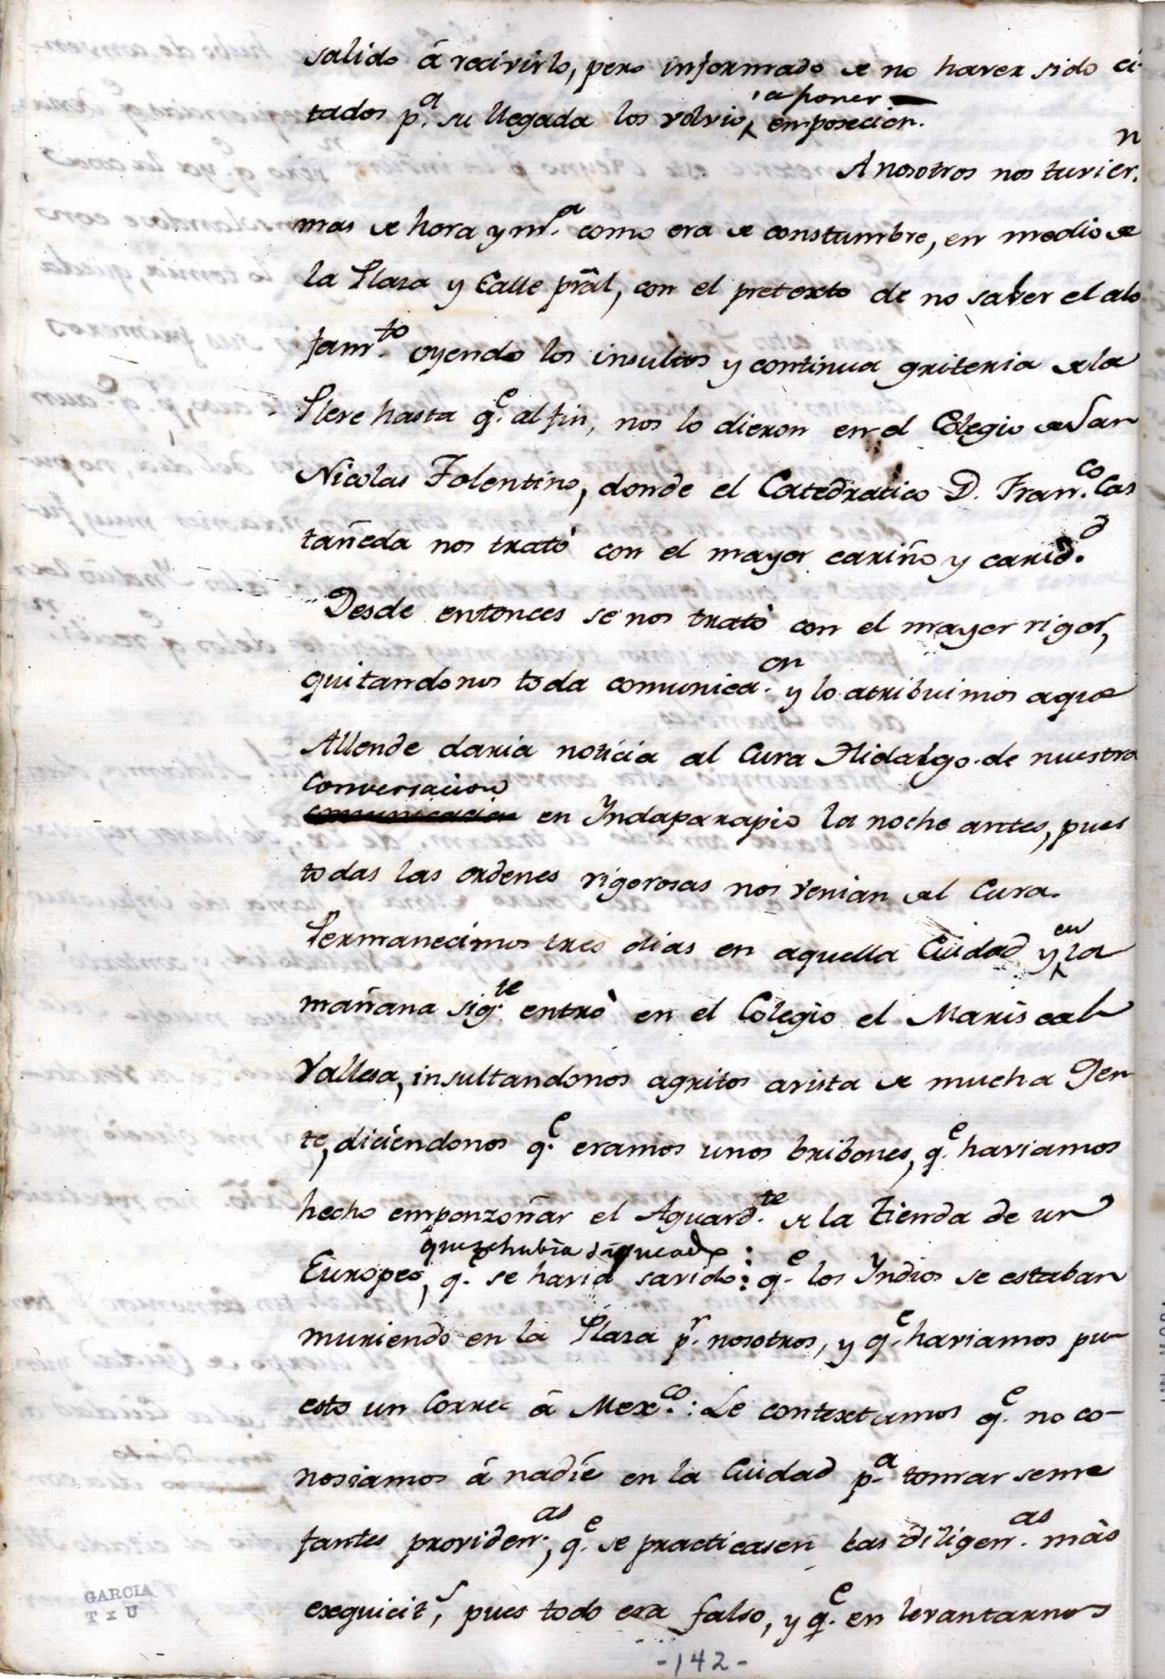 salido á recivirlo, pero informado de no haver sido ci-
tados p.a su llegada los volvió a poner
en poseción.
A nosotros nos tuvier.n
mas de hora y m.a como era de constumbre, en medio de
la Plaza y Calle prãl, con el pretexto de no saber el alo
jam.to oyendo los insultos y continua griteria de la
Pleve hasta q.e al fin, nos lo dieron en el Colegio de San
Nicolas Tolentino, donde el Catedratico D. Fran.co Cas
tañeda nos trató con el mayor cariño y carid.d
Desde entonces se nos trató con el mayor rigor,
quitandonos toda comunica.on y lo atribuimos aque
Allende daria noticia al Cura Hidalgo de nuestra
conversacion
comunicacion en Yndaparapio la noche antes, pues
todas las ordenes rigorosas nos venian del Cura.
Permanecimos tres dias en aquella Ciudad y en la
mañana sig.te entró en el Colegio el Mariscal
Vallesa, insultandonos agritos avista de mucha Gen
te, diciendonos q.e eramos unos bribones, q.e haviamos
hecho emponzoñar el Aguard.te de la Tienda de un
que se hubia saqueado:
Europeo, q.e se havia savido: q.e los Yndios se estaban
muriendo en la Plaza p.r nosotros, y q.e haviamos pu-
esto un Correo á Mex.co: Le contextamos q.e no co-
nosiamos á nadie en la Ciudad p.a tomar seme
jantes providen.as, q.e se practicasen las diligen.as más
exquicit.s, pues todo era falso, y q.e en levantarnos
GARCIA
-142-